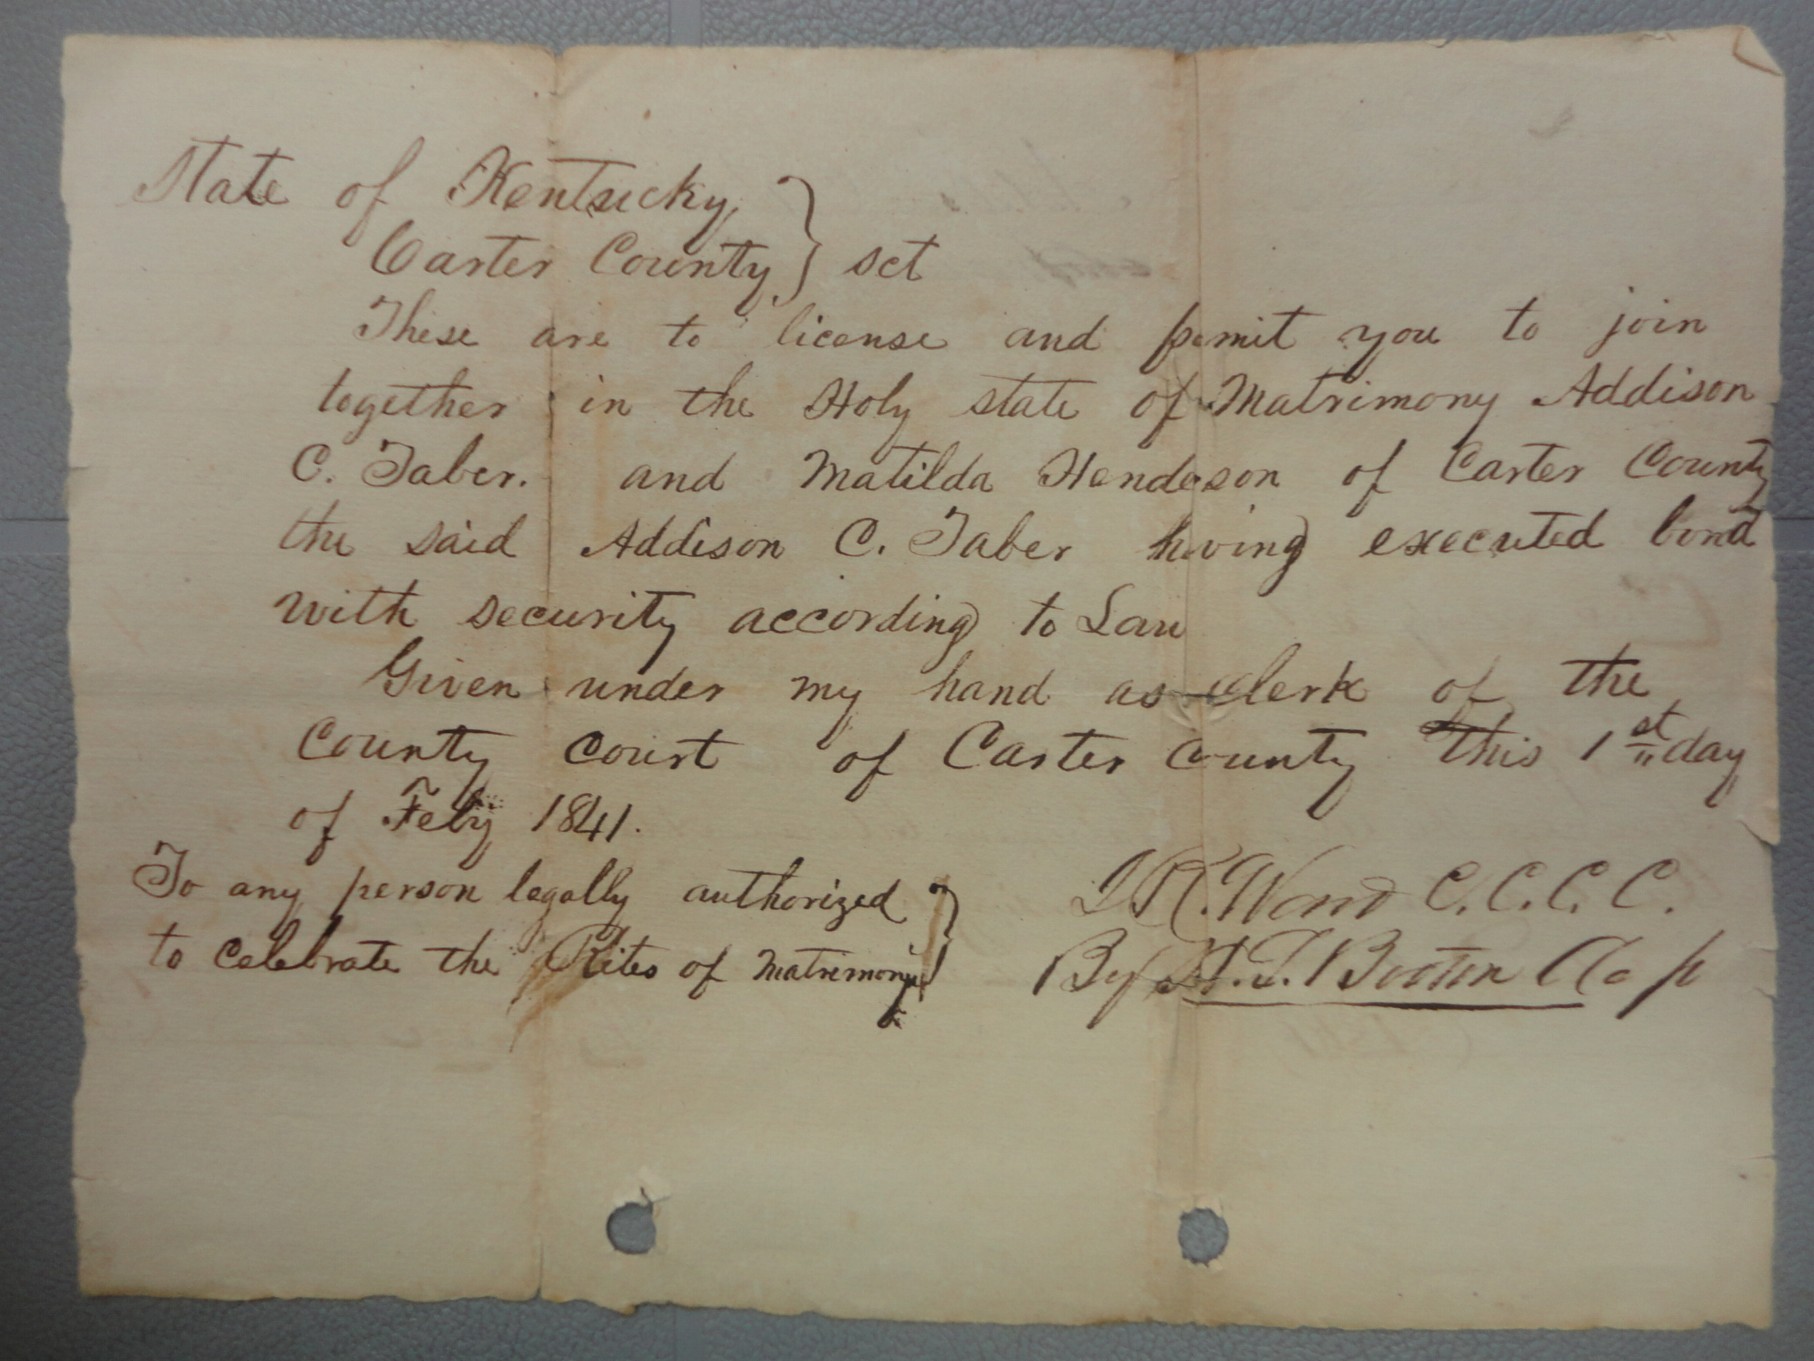 State of Kentucky,
Carter County } sct
These are to license and permit you to join
together in the Holy state of Matrimony Addison
C. Taber. and Matilda Henderson of Carter County
the said Addison C. Taber having executed bond
with security according to Law
Given under my hand as clerk of the
County court of Carter county this 1st day
of Feby 1841.
To any person legally authorized }
to celebrate the Rites of Matrimony
Ward C. C. C. C.
By